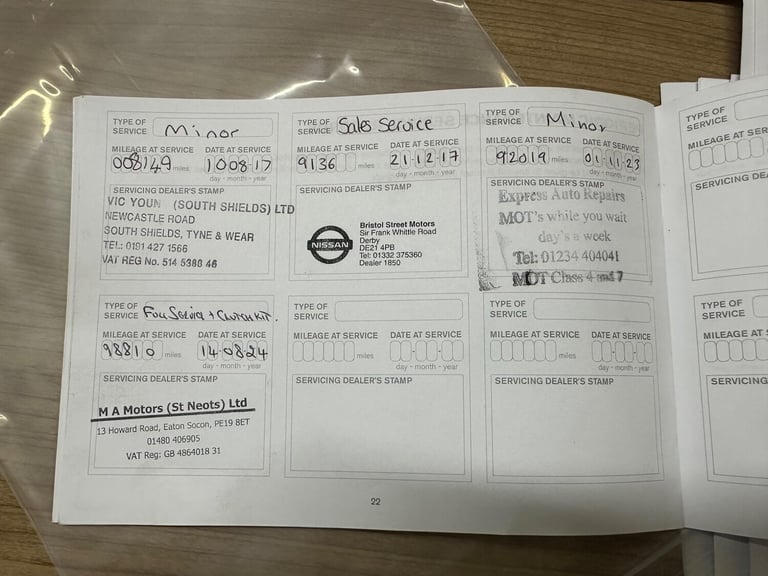 TYPE OF SERVICE Minor
MILEAGE AT SERVICE DATE AT SERVICE
008149 miles 10 08 17
day - month - year
SERVICING DEALER'S STAMP
VIC YOUN (SOUTH SHIELDS) LTD
NEWCASTLE ROAD
SOUTH SHIELDS, TYNE & WEAR
TEL: 0191 427 1566
VAT REG No. 514 5388 46
TYPE OF SERVICE Sales Service
MILEAGE AT SERVICE DATE AT SERVICE
9136 miles 21 12 17
day - month - year
SERVICING DEALER'S STAMP
NISSAN
Bristol Street Motors
Sir Frank Whittle Road
Derby
DE21 4PB
Tel: 01332 375360
Dealer 1850
TYPE OF SERVICE Minor
MILEAGE AT SERVICE DATE AT SERVICE
92019 miles 01 11 23
day - month - year
SERVICING DEALER'S STAMP
Express Auto Repairs
MOT's while you wait
day's a week
Tel: 01234 404041
MOT Class 4 and 7
TYPE OF SERVICE
MILEAGE AT SER
SERVICING DEA
TYPE OF SERVICE Full Service + Clutch Kit.
MILEAGE AT SERVICE DATE AT SERVICE
98810 miles 14 08 24
day - month - year
SERVICING DEALER'S STAMP
M A Motors (St Neots) Ltd
13 Howard Road, Eaton Socon, PE19 8ET
01480 406905
VAT Reg: GB 4864018 31
TYPE OF SERVICE
MILEAGE AT SERVICE DATE AT SERVICE
miles
day - month - year
SERVICING DEALER'S STAMP
TYPE OF SERVICE
MILEAGE AT SERVICE DATE AT SERVICE
miles
day - month - year
SERVICING DEALER'S STAMP
TYPE OF SERVICE
MILEAGE AT S
SERVICING
22